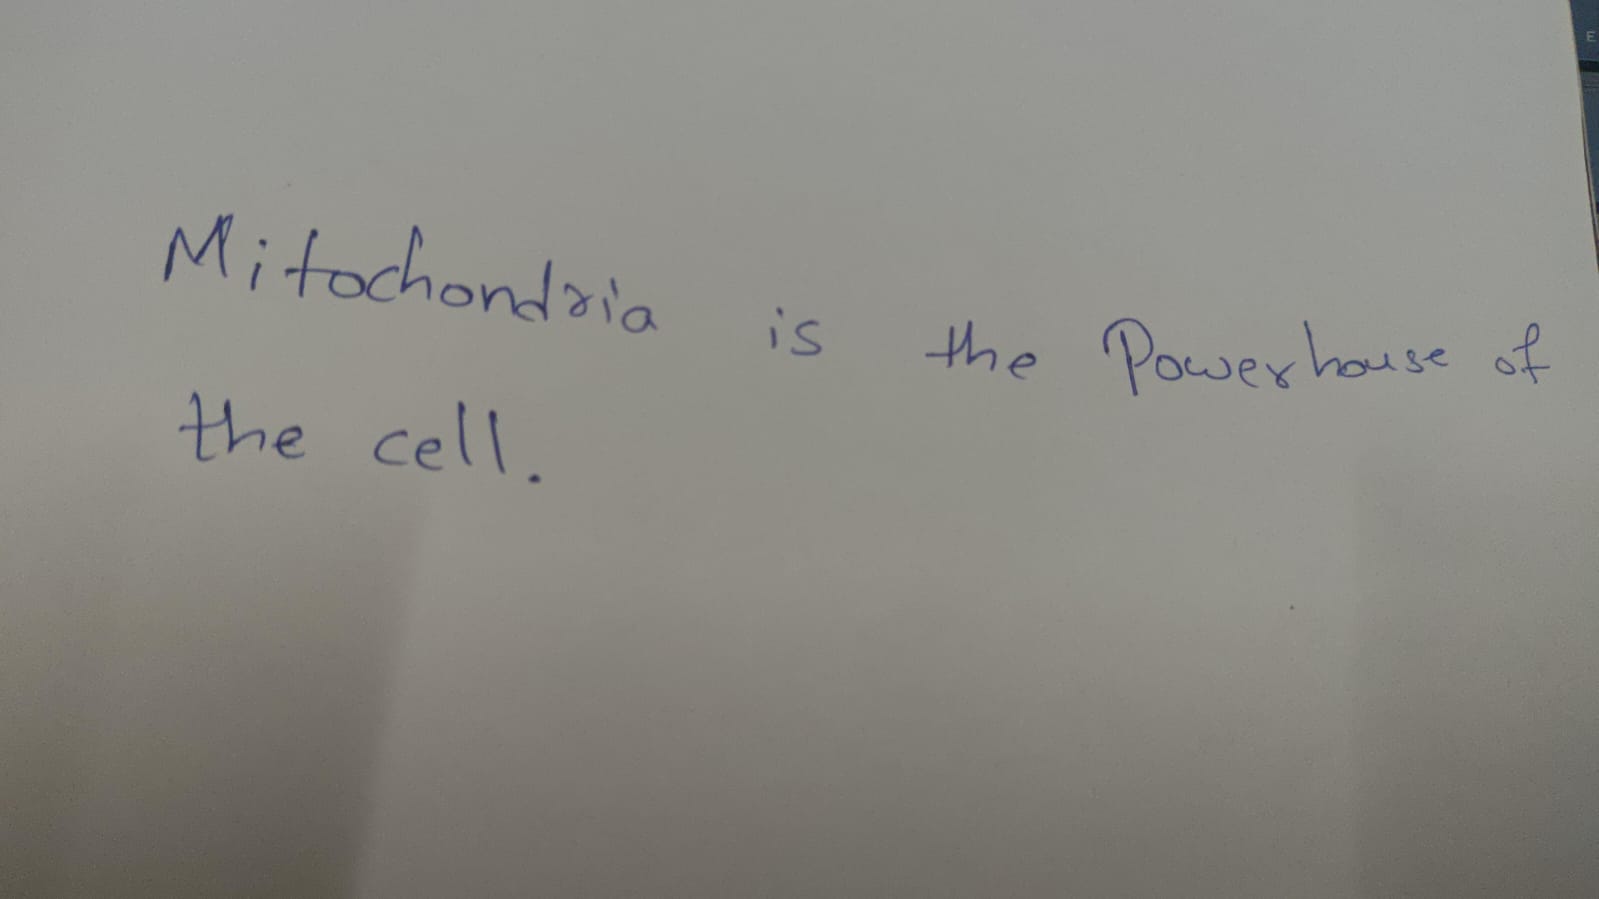 Mitochondria is the Powerhouse of
the cell.
E